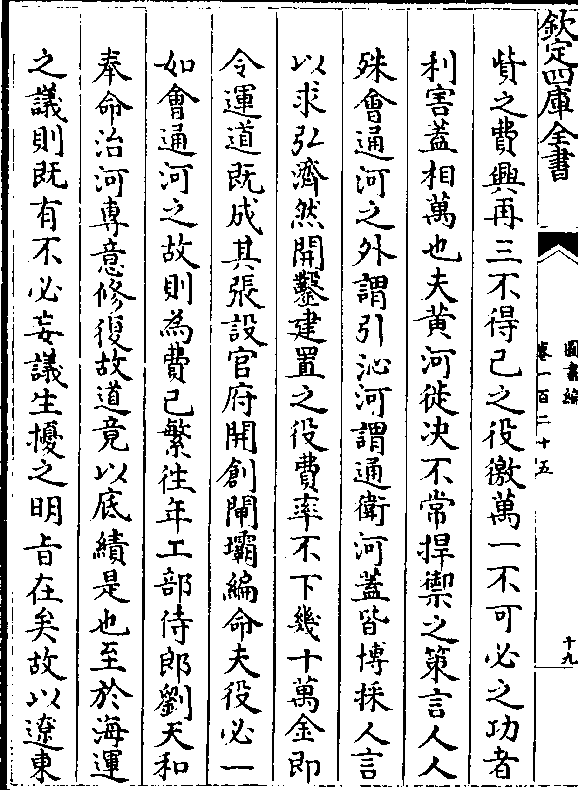 欽定四庫全書
圖書編
卷一百二十五
十九
貲之費興再三不得已之役徼萬一不可必之功者
利害蓋相萬也夫黄河徙决不常捍禦之策言人人
殊會通河之外謂引沁河謂通衛河蓋皆博採人言
以求弘濟然開鑿建置之役費率不下幾十萬金即
令運道既成其張設官府開創閘壩編命夫役必一
如會通河之故則為費已繁往年工部侍郎劉天和
奉命治河專意修復故道竟以底績是也至於海運
之議則既有不必妄議生擾之明㫖在矣故以遼東